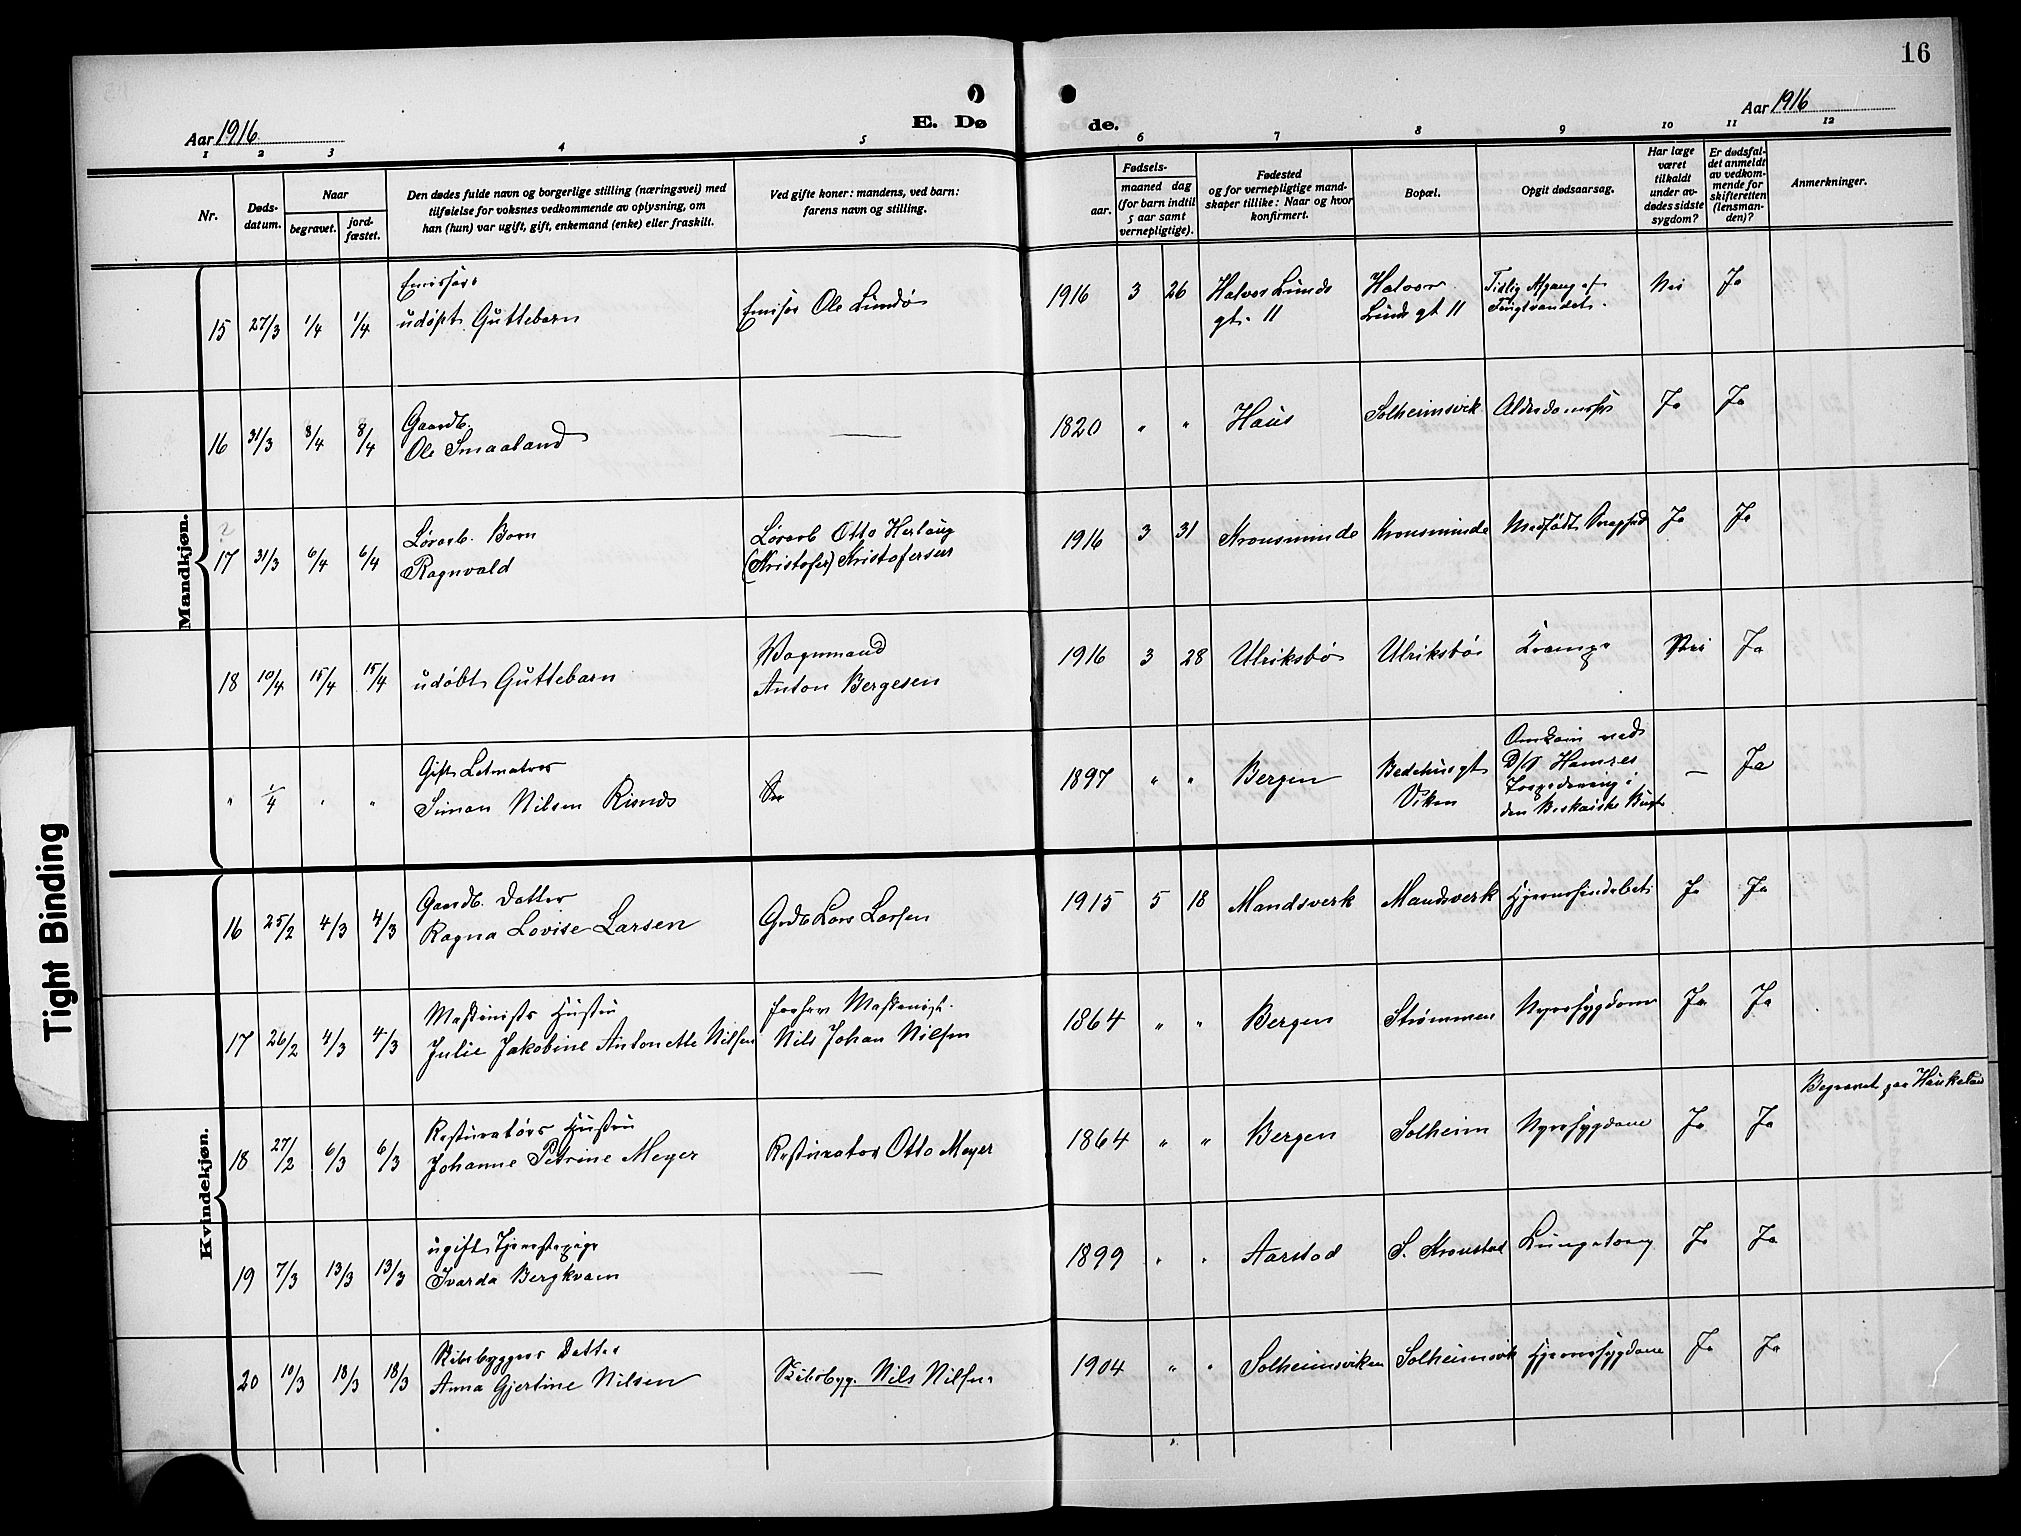 16
Aar 1916
E. Dø
de.
Aar 1916
1 2 3 4 5 6 7 8 9 10 11 12
Nr.
Døds-
datum.
Naar
begravet.
jord-
fæstet.
Den dødes fulde navn og borgerlige stilling (næringsvei) med
tilføielse for voksnes vedkommende av oplysning, om
han (hun) var ugift, gift, enkemand (enke) eller fraskilt.
Ved gifte koner: mandens, ved barn:
farens navn og stilling.
Fødsels-
aar.
maaned dag
(for barn indtil
5 aar samt
vernepligtige).
Fødested
og for vernepligtige mand-
skaper tillike: Naar og hvor
konfirmert.
Bopæl.
Opgit dødsaarsag.
Har læge
været
tilkaldt
under av-
dødes sidste
sygdom?
Er dødsfal-
det anmeldt
av vedkom-
mende for
skifteretten
(lensman-
den)?
Anmerkninger.
Mandkjøn.
15 27/3 1/4 1/4
Emissørs
udöpt Guttebarn
Emisör Ole Lindö
1916 3 26
Halvor Linds
gt. 11
Halvor
Linds gt 11
Tidlig Afgang af
Nei Ja
16 31/3 8/4 8/4
Gaardb.
Ole Smaaland
1820 " "
Haus
Solheimsvik
Alderdomssl
Ja Ja
?
17 31/3 6/4 6/4
Lörarb. Barn
Ragnvald
Lörarb Otto Herlaug
(Kristofer) Kristofersen
1916 3 31
Kronsminde
Kronsminde
Medfödt
Ja Ja
18 10/4 15/4 15/4
udöbt Guttebarn
Vognmand
Anton Bergesen
1916 3 28
Ulriksbö
Ulriksbö
Krampe
Nei Ja
" 1/4 " "
Gift Letmatros
Simon Nilsen
1897 " "
Bergen
Bedehusgt
Viken
Omkom ved
D/S
Torpedering i
den Biskaiske Bugt
— Ja
Kvindekjøn.
16 25/2 4/3 4/3
Gaardb. Datter
Ragna Lovise Larsen
Grdb Lars Larsen
1915 5 18
Mandsverk
Mandsverk
Hjernehindebet.
Ja Ja
17 26/2 4/3 4/3
Maskinists Hustru
Julie Jakobine Antonette Nilsen
Maskinist
Nils Johan Nilsen
1864 " "
Bergen
Strömmen
Nyresygdom
Ja Ja
18 27/2 6/3 6/3
Restauratörs Hustru
Johanne Petrine Meyer
Restauratör Otto Meyer
1864 " "
Bergen
Solheim
Nyresygdom
Ja Ja
Begravet paa Haukeland
19 7/3 13/3 13/3
ugift Tjenestepige
Ivarda Bergkvam
1899 " "
Aarstad
S. Kronstad
Ja Ja
20 10/3 18/3 18/3
Skibsbyggers Datter
Anna Gjertine Nilsen
Skibsbyg. Nils Nilsen
1904 " "
Solheimsviken
Solheimsvik
Hjernesygdom
Ja Ja
Tight Binding